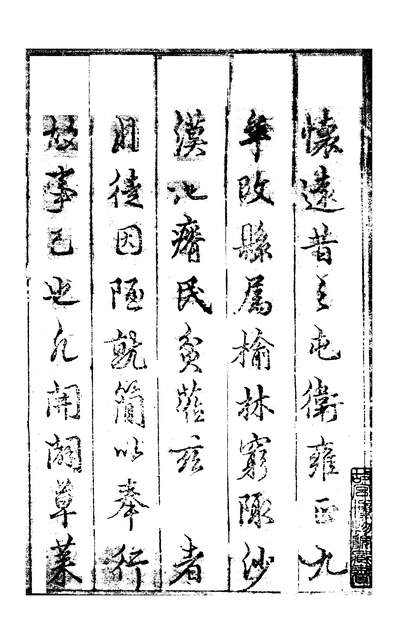 懷遠昔之屯衛雍正九
年改縣屬榆林窮陬沙
漠地瘠民貧蒞茲者
因陋就簡以奉行
故事已也凡開闢草萊